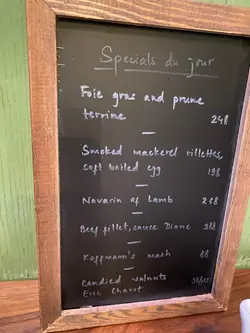 Specials du jour
Foie gras and prune
terrine 248
Smoked mackerel rillettes,
soft boiled egg 198
Navarin of Lamb 268
Beef fillet, sauce Diane 388
Koffmann's mash 88
Candied walnuts
Eric Chavot